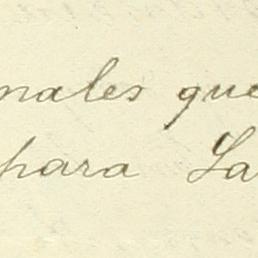 nales que
para La